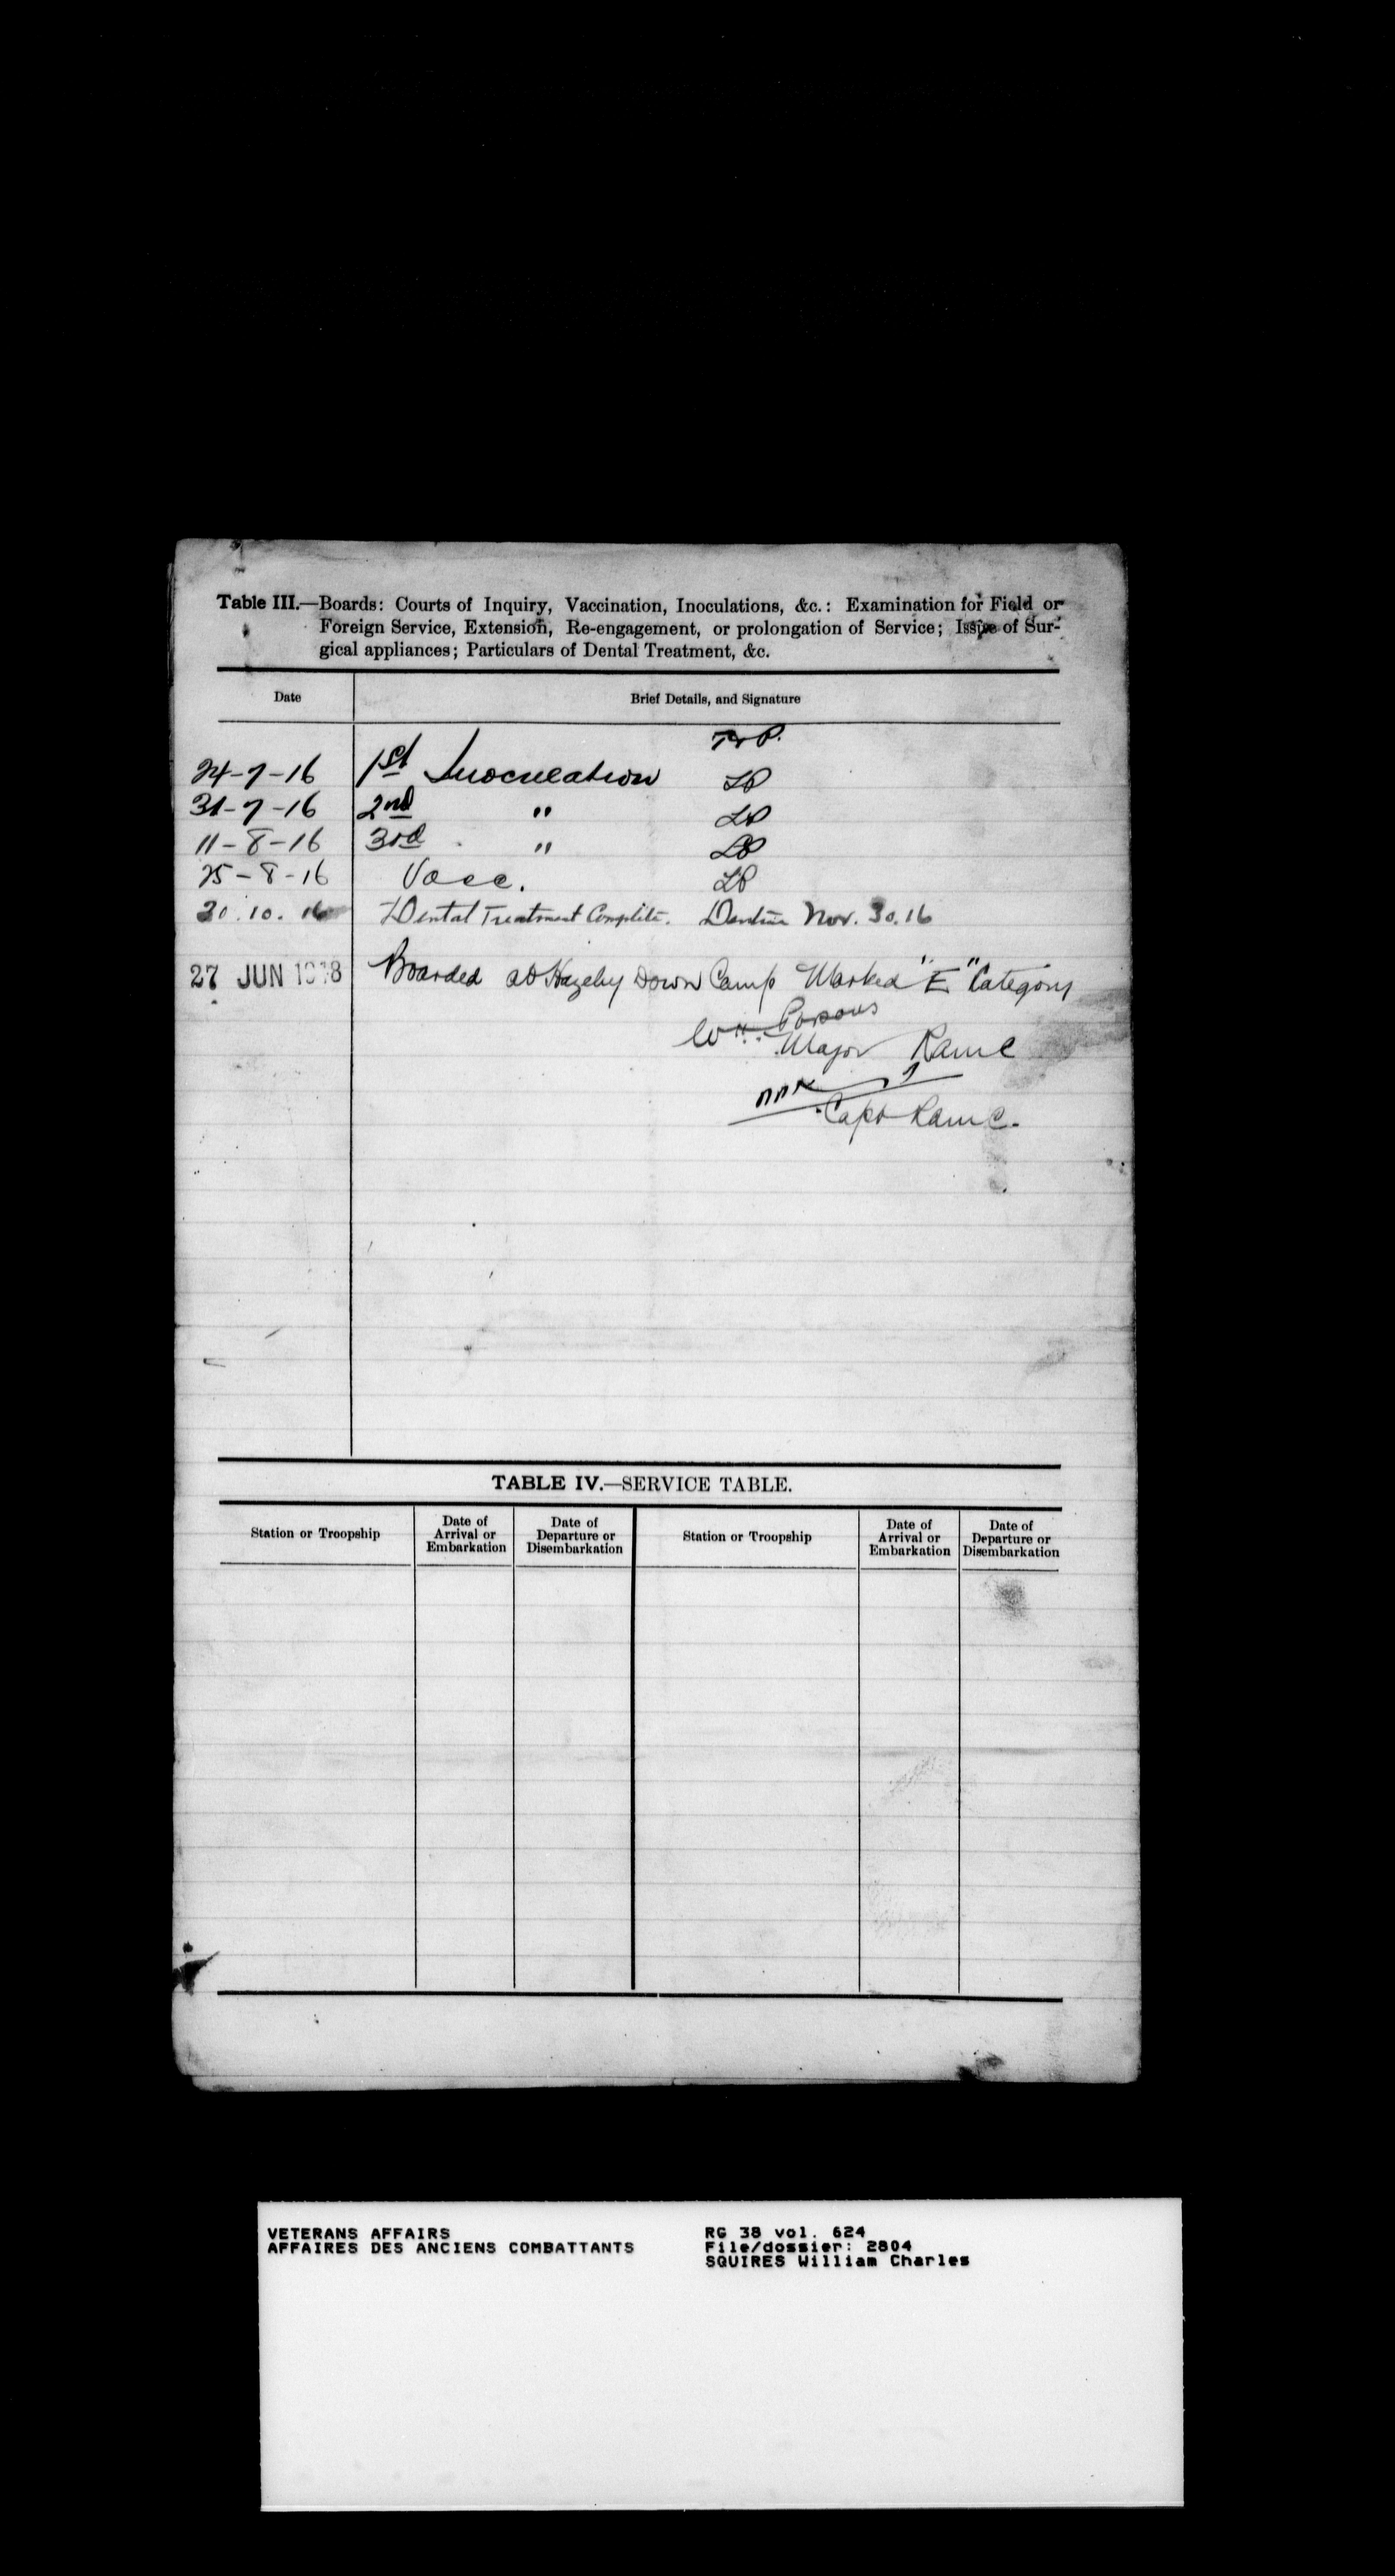 Table III.—Boards: Courts of Inquiry, Vaccination, Inoculations, &c.: Examination for Field or
Foreign Service, Extension, Re-engagement, or prolongation of Service; Issue of Sur-
gical appliances; Particulars of Dental Treatment, &c.
Date Brief Details, and Signature
24-7-16 1st Inoculation
31-7-16 2nd "
11-8-16 3rd "
25-8-16 Vacc.
30.10.16 Dental Treatment Complete. Nov. 30.16
27 JUN 1918 Boarded at Hazeley Down Camp Marked "E" Category
Wm. Parsons
Major RAMC
Capt RAMC.
TABLE IV.—SERVICE TABLE.
Station or Troopship Date of Arrival or Embarkation Date of Departure or Disembarkation Station or Troopship Date of Arrival or Embarkation Date of Departure or Disembarkation
VETERANS AFFAIRS RG 38 vol. 624
AFFAIRES DES ANCIENS COMBATTANTS File/dossier: 2804
SQUIRES William Charles